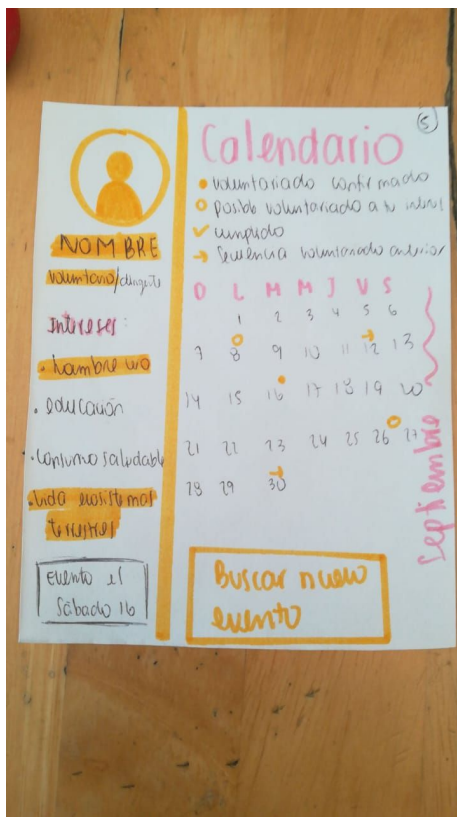 5
NOMBRE
voluntario/dirigente
Intereses:
. hambre cero
. educación
. consumo saludable
. vida ecosistemas
terrestres
Evento el
Sábado 16
Calendario
voluntariado confirmado
posible voluntariado a tu interes
cumplido
secuencia voluntariado anterior
D L M M J V S
1 2 3 4 5 6
7 8 9 10 11 12 13
14 15 16 17 18 19 20
21 22 23 24 25 26 27
28 29 30
Septiembre
Buscar nuevo
evento